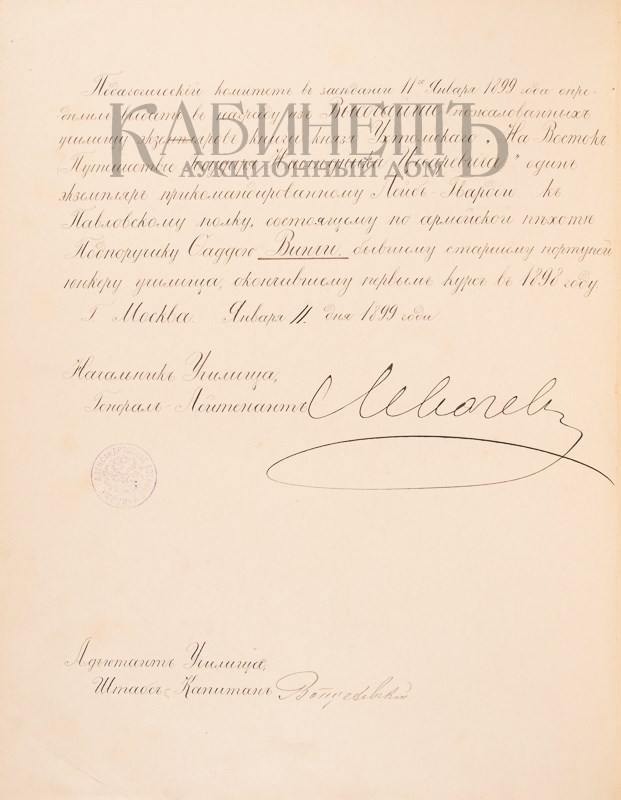 Педагогическій комитетъ въ засѣданіи 11го Января 1899 года опре-
дѣлилъ выдать въ награду изъ Высочайше пожалованныхъ
училищу экземпляровъ книги Князя Ухтомскаго „На Востокъ
КАБИНЕТЪ
АУКЦИОННЫЙ ДОМ
Путешествіе Государя Наслѣдника Цесаревича" одинъ
экземпляръ прикомандированному Лейбъ-Гвардіи къ
Павловскому полку, состоящему по армейской пѣхотѣ
Подпоручику Саддою Винги, бывшему старшему портупей
юнкеру училища, окончившему первымъ курсъ въ 1898 году.
Г. Москва. Января 11 дня 1899 года
Начальникъ Училища,
Генералъ-Лейтенантъ Левачевъ
Адъютантъ Училища,
Штабсъ-Капитанъ